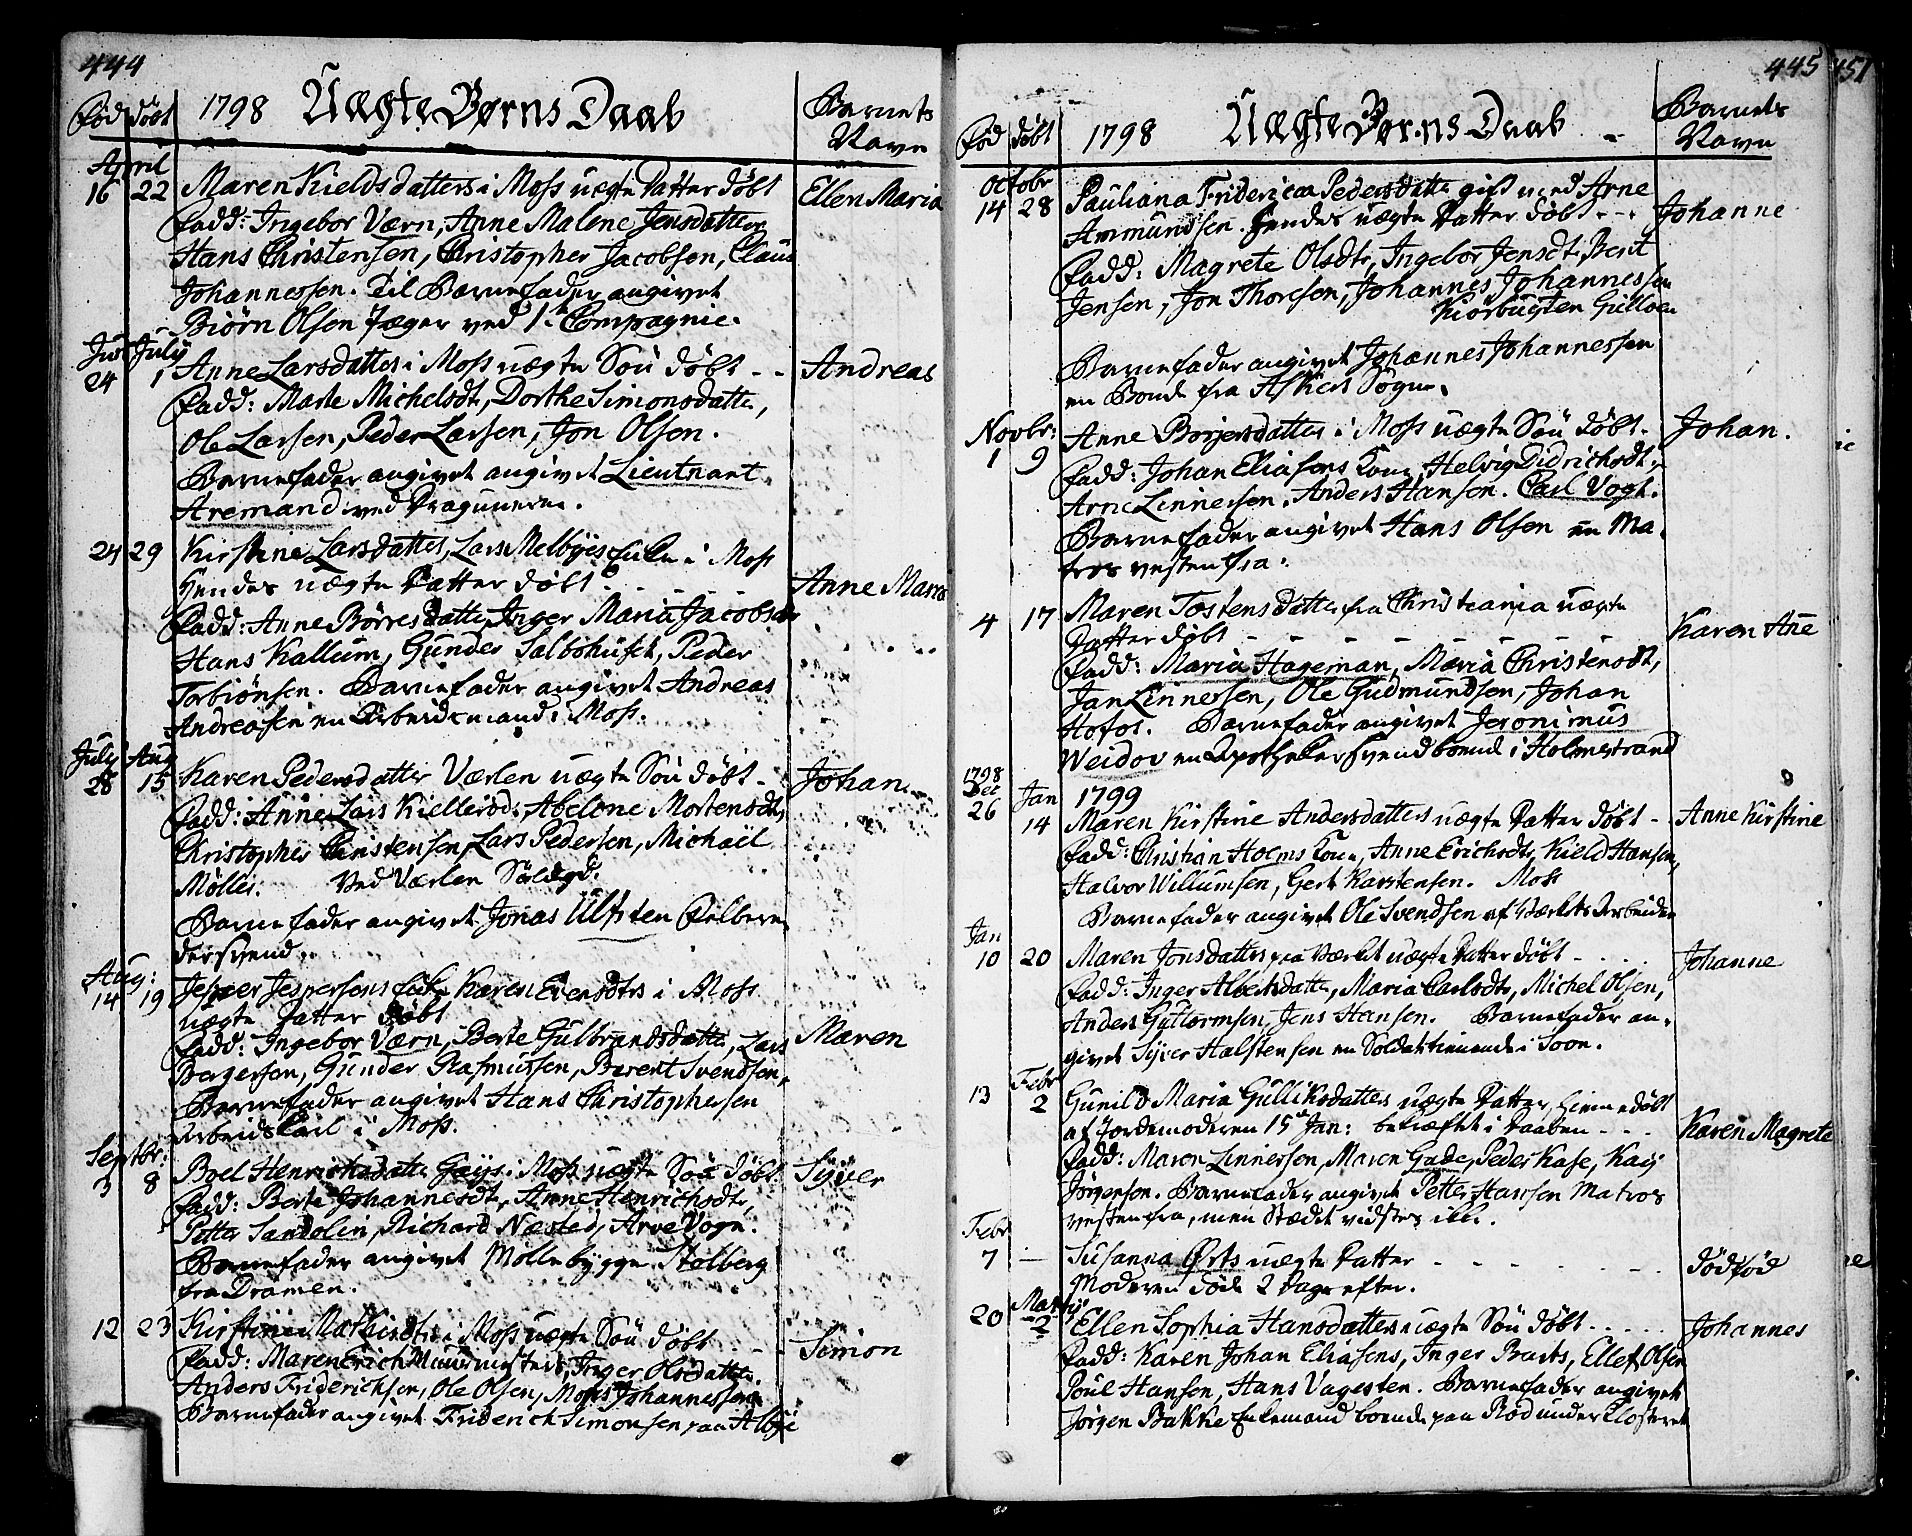 444
Fød døbt 1798 Uægte Børns Daab Barnets Navn
April
16 22 Maren Kieldsdatters i Moss uægte Datter døbt Ellen Maria
Fadd: Ingebor Værn, Anne Malene Jensdatter
Hans Christensen, Christopher Jacobsen, Claus
Johannessen. Til Barnefader angivet
Biørn Olsen Jæger ved 1. Compagnie.
Jun July
24 1 Anne Larsdatters i Moss uægte Søn døbt - - Andreas
Fadd: Marte Michelsdt, Dorthe Simonsdatter,
Ole Larsen, Peder Larsen, Jon Olsen.
Barnefader angivet angivet Lieutnant
Aremand ved Dragunerne.
24 29 Kirstine Larsdatter, Lars Melbyes Enke i Moss
hendes uægte Datter døbt - - - - Anne Maria
Fadd: Anne Børresdatter, Inger Maria Jacobsdr
Hans Kallum, Gunder Salbohuset, Peder
Torbiönsen. Barnefader angivet Andreas
Andreasen en Arbeidsmand i Moss.
July Aug
28 15 Karen Pedersdatter Værlen uægte Søn døbt - Johan
Fadd: Anne Lars Kiellerød, Abelone Mortensdtr,
Christopher Christensen, Lars Pedersen, Michaël
Møller. Ved Værlen
Barnefader angivet Jonas Ulfsten Felbere
dersvend.
Aug:
14 19 Jesper Jespersens Enke Karen Evensdtrs i Moss
uægte Datter døbt Maren
Fadd: Ingebor Værn, Berte Gulbrandsdatter, Lars
Bergersen, Gunder Rasmussen, Berent Svendsen,
Barnefader angivet Hans Christophersen
Arbeids Karl i Moss.
Septbr:
3 8 Boel Henrichsdatter Gays i Moss uægte Søn døbt Syver
Fadd: Berte Johannesdt, Anne Henrichsdt,
Petter Sandolin, Richard Næsted, Arve Vogn.
Barnefader angivet Møllebygger Stolberg
fra Dramen.
12 23 Kirstine Mathisdtrs i Moss uægte Søn døbt - - Simon
Fadd: Maren Erich Muurmesters, Inger Olsdatter
Anders Friderichsen, Ole Olsen, Mons Johannessen
Barnefader angivet Friderich Simonsen paa Albye
445
Fød døbt 1798 Uægte Børns Daab - Barnets Navn
Octobr
14 28 Pauliana Fridericaa Pedersdatter gift med Arne
Ammundsen. hendes uægte Datter døbt - - - Johanne
Fadd: Magrete Olsdtr, Ingebor Jensdt, Bent
Jensen, Jon Thoresen, Johannes Johannessen
Kiorbugten
Barnefader angivet Johannes Johannessen
en Bonde fra Askers Sogn.
Novbr:
1 9 Anne Borgersdatters i Moss uægte Søn døbt. Johan.
Fadd: Johan Eliasons Kone, Helvig Didrichsdt,
Arne Linnersen. Anders Hansen. Carl Vogt.
Barnefader angivet Hans Olsen en Ma-
tros vestenfra.
4 17 Maren Tostensdatter fra Christiania uægte
Datter døbt - - - - - - - Karen Ane
Fadd: Maria Hageman, Maria Christensdt,
Jan Linnersen, Ole Gudmundsen, Johan
Hofos. Barnefader angivet Jeronimus
Weidov en Apothekersvend boend i Holmestrand
1798
Dec Jan 1799
26 14 Maren Kirstine Andersdatters uægte Datter døbt - Anne Kirstine
Fadd: Christian Holms Kone, Anne Erichsdtr, Kield Hansen,
Halvor Willumsen, Gert Karstensen. Moss
Barnefader angivet Ole Svendsen af Værkets Arbeider
Jan
10 20 Maren Jonsdatters paa Værket uægte Datter døbt - - - Johanne
Fadd: Inger Albertsdatter, Maria Carlsdtr, Michel Olsen,
Anders Guttormsen, Jens Hansen. Barnefader an-
givet Syver Halstensen en Soldat tienende i Soon.
Febr
13 2 Gunild Maria Gulliksdatters uægte Datter, hiemedøbt
af Jordemoderen 15 Jan: bekræftet i Daaben - - - Karen Magrete
Fadd: Maren Linnersen, Maren Gude, Peder Kase, Kay
Jörgensen. Barnefader angivet Petter Hansen Matros
vestenfra, men Stædet vidstes ikke.
Febr
7 — Susanna Örts uægte Datter - - - - - - dödfød
Moderen døde 2 Dage efter.
Martij
20 2 Ellen Sophia Hansdatters uægte Søn døbt - - - Johannes
Fadd: Karen Johan Eliasens, Inger Barts, Ellef Olsen
Poul Hansen, Hans Vagesten. Barnefader angivet
Jørgen Bakke Enkemand boende paa Rød under Closteret
451